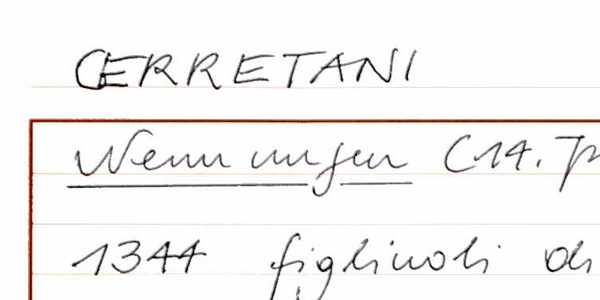 CERRETANI
Nennungen (14.
1344 figliuoli di